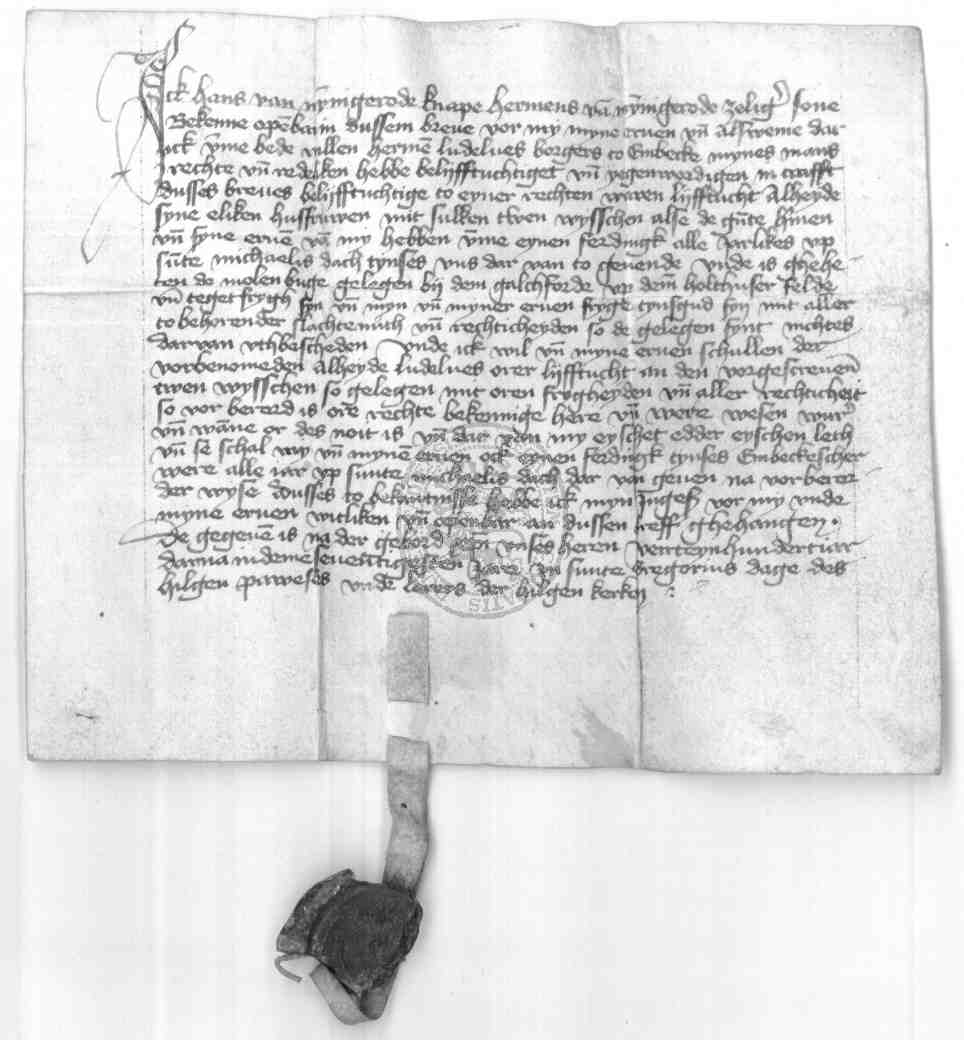 Ick Hans van nÿmgerode knape Hermens vā nÿmgerode zelig' sone
Bekenne opēbain dussem breve vor my myne erven vn̄ alsweme dat
ick v̄me bede willen Hermē ludelves borgers to Embecke mynes mans
rechte vn̄ redeliken hebbe belijfftuchtiget vn̄ yegenwordigen in crafft
dusses breves belijfftuchtige to eyner rechten waren lijfftucht Alheyde
syne eliken husfruwen mit sulken twen wysschen alse de gn̄te h'men
vn̄ syne ervē vā my hebben v̄me eynen ferdingk alle Jarlikes up
sūte michaelis dach tynses uns dar van to gevende unde is ghehe
ten de molen buge gelegen bij dem galchforde up dem holthuser felde
vn̄ teget frygh syn vn̄ myn vn̄ myner erven fryge tynsgud syn mit aller
to behorender slachte nuth vn̄ rechticheyden so de gelegen synt nichtes
darvan uthbescheden unde ick wil vn̄ myne erven schullen der
vorbenomeden Alheyde ludelves orer lijfftucht an den vorgescrevenē
twen wysschen so gelegen mit oren frygheyden vn̄ aller rechticheit
so vor berord is ore rechte bekennige here vn̄ were wesen
vn̄ wāne or des noit is vn̄ dat van my eyschet edder eyschen leth
vn̄ se schal my vn̄ myne erven ock eynen ferdingk tynses Embeckescher
were alle iar up sunte michaelis dach dar van geven na vorberer
der wyse dusses to bekantnisse hebbe ick myn Inges' vor my unde
myne erven witliken vn̄ openbar an dussen breff ghehangen.
De gegevē is na der gebord xp̄i unses heren verteynhundert iar
darna in deme seventigesten Jare in sunte Gregorius dage des
hilgen pawestes unde lerers der hilgen kerken :